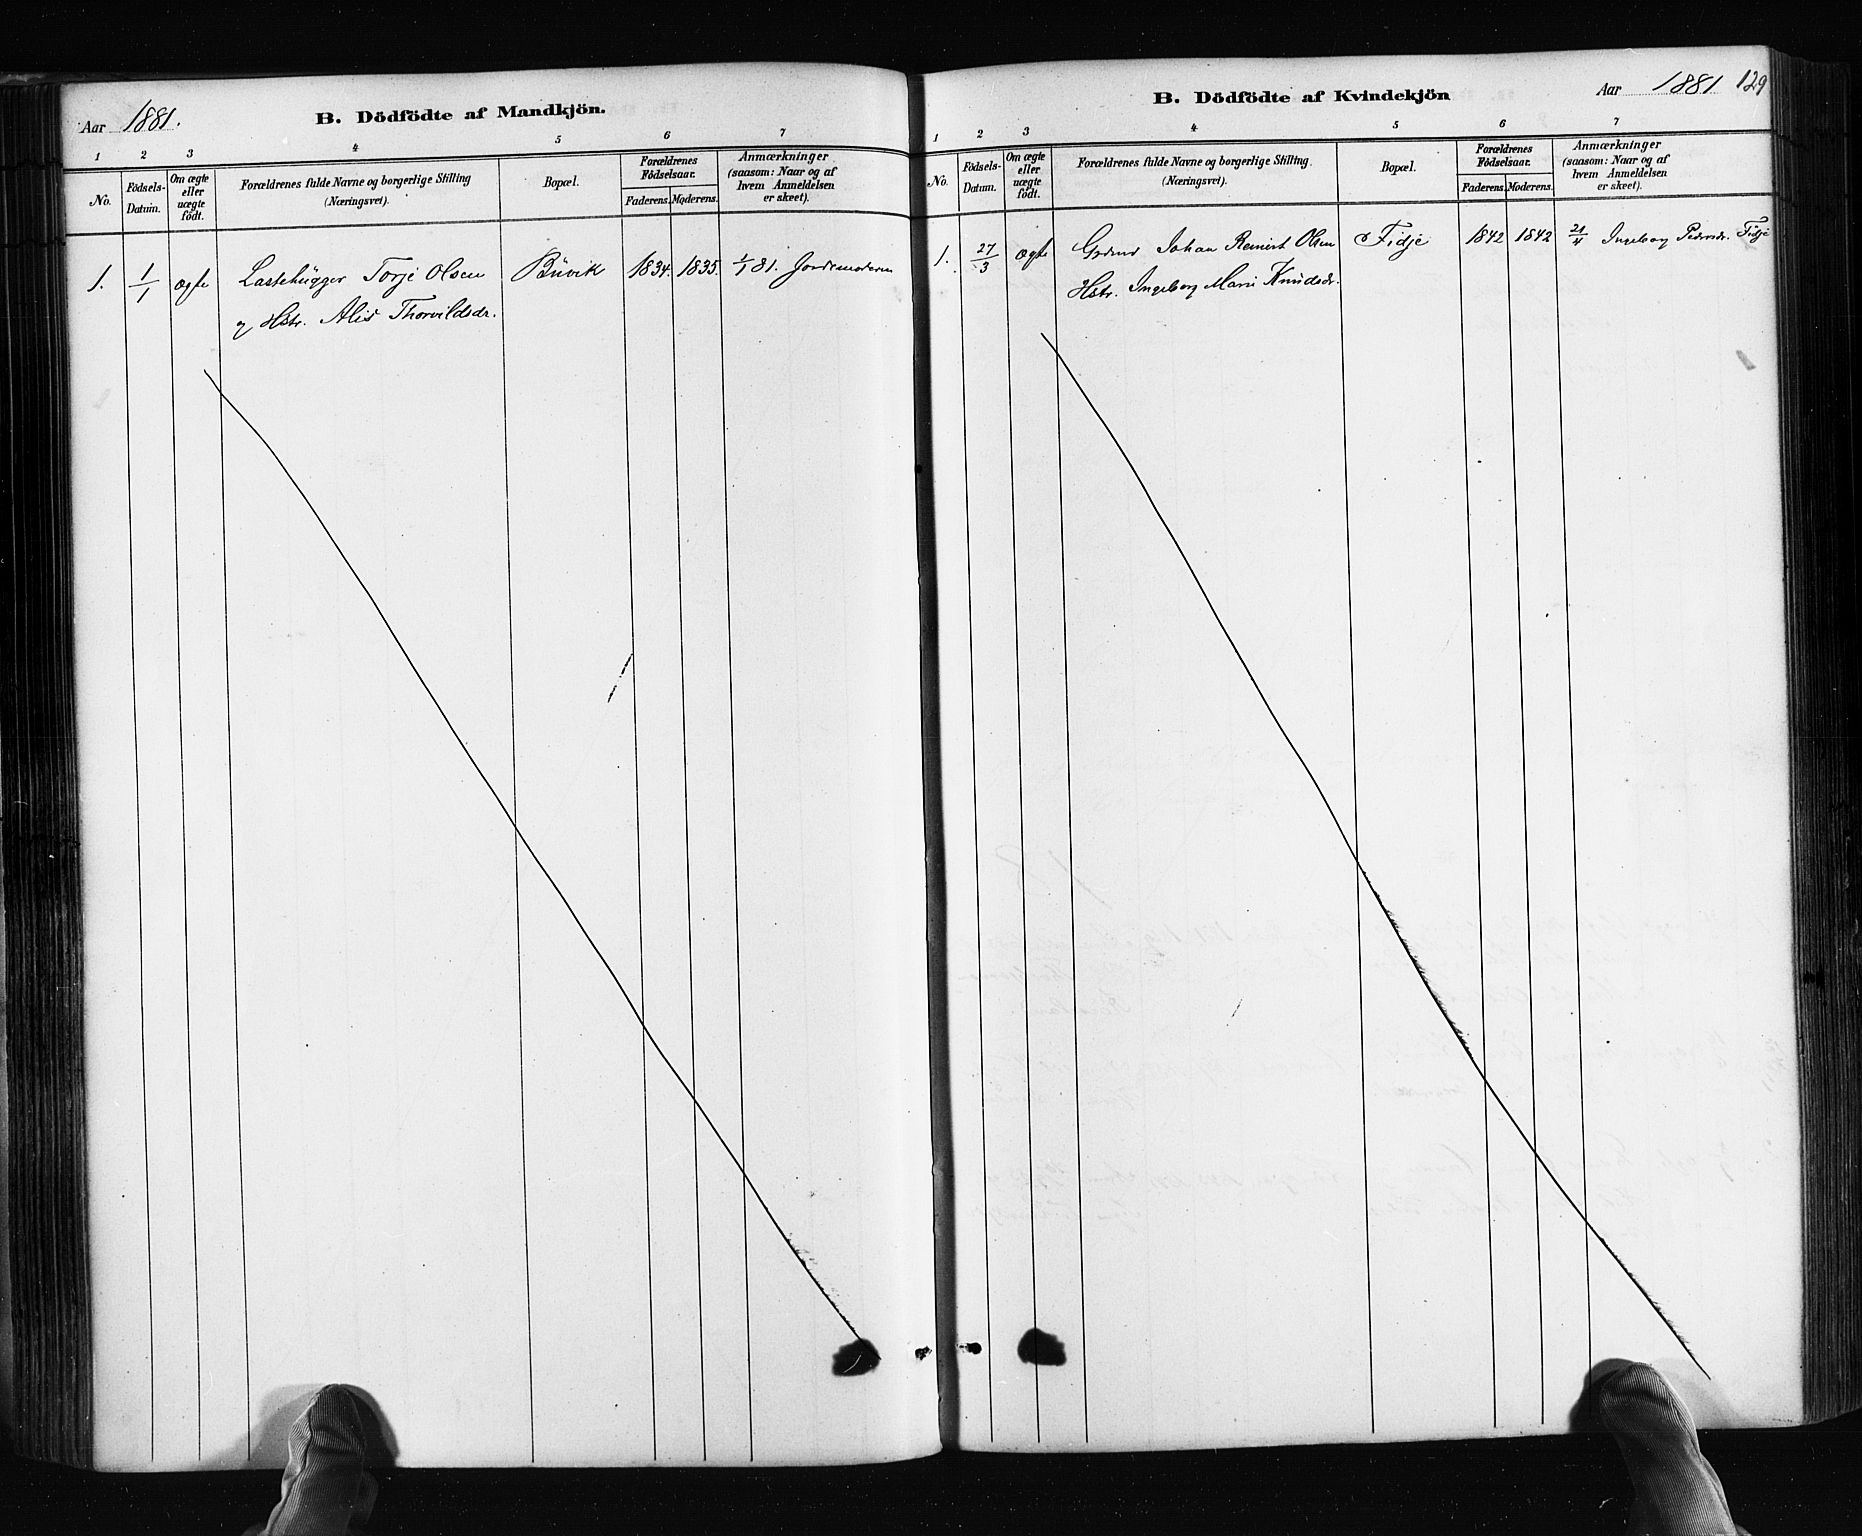 Aar 1881.
B. Dödfödte af Mandkjön.
1 2 3 4 5 6 7
No.
Födsels-
Datum.
Om ægte
eller
uægte
födt.
Forældrenes fulde Navne og borgerlige Stilling
(Næringsvei).
Bopæl.
Forældrenes
Födselsaar.
Faderens. Moderens.
Anmærkninger
(saasom: Naar og af
hvem Anmeldelsen
er skeet).
1. 1/1 ægte Lastehugger Torje Olsen Büvik 1834. 1835. 1/1 81. Jordemoderen
og Hstr. Alis Thorvildsdr.
B. Dödfödte af Kvindekjön
Aar 1881 129
1 2 3 4 5 6 7
No.
Födsels-
Datum.
Om ægte
eller
uægte
födt.
Forældrenes fulde Navne og borgerlige Stilling.
(Næringsvei).
Bopæl.
Forældrenes
Födselsaar.
Faderens. Moderens.
Anmærkninger
(saasom: Naar og af
hvem Anmeldelsen
er skeet).
1. 27/3 ægte Grdmd Johan Reinert Olsen Fidje 1842 1842 21/4 Ingeborg Pedersdr. Fidje
Hstr. Ingeborg Marie Knüdsdr.